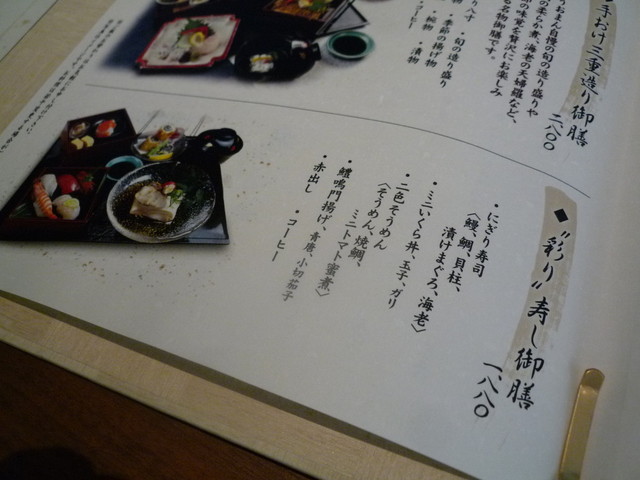 手おけ三重造り御膳
二八〇〇
うおまん自慢の旬の造り盛りや
柔らか煮、海老の天婦羅など、
の味覚を贅沢にお楽しみ
る名物御膳です。
・旬の造り盛り
・季節の揚げ物
・漬物
・コーヒー
◆“彩り”寿し御膳
一、八八〇
・にぎり寿司
〈鰻、鯛、貝柱、
漬けまぐろ、海老〉
・ミニいくら丼、玉子、ガリ
・二色そうめん
〈そうめん、焼鯛、
ミニトマト蜜煮〉
・鱧鳴門揚げ、青唐、小切茄子
・赤出し
・コーヒー